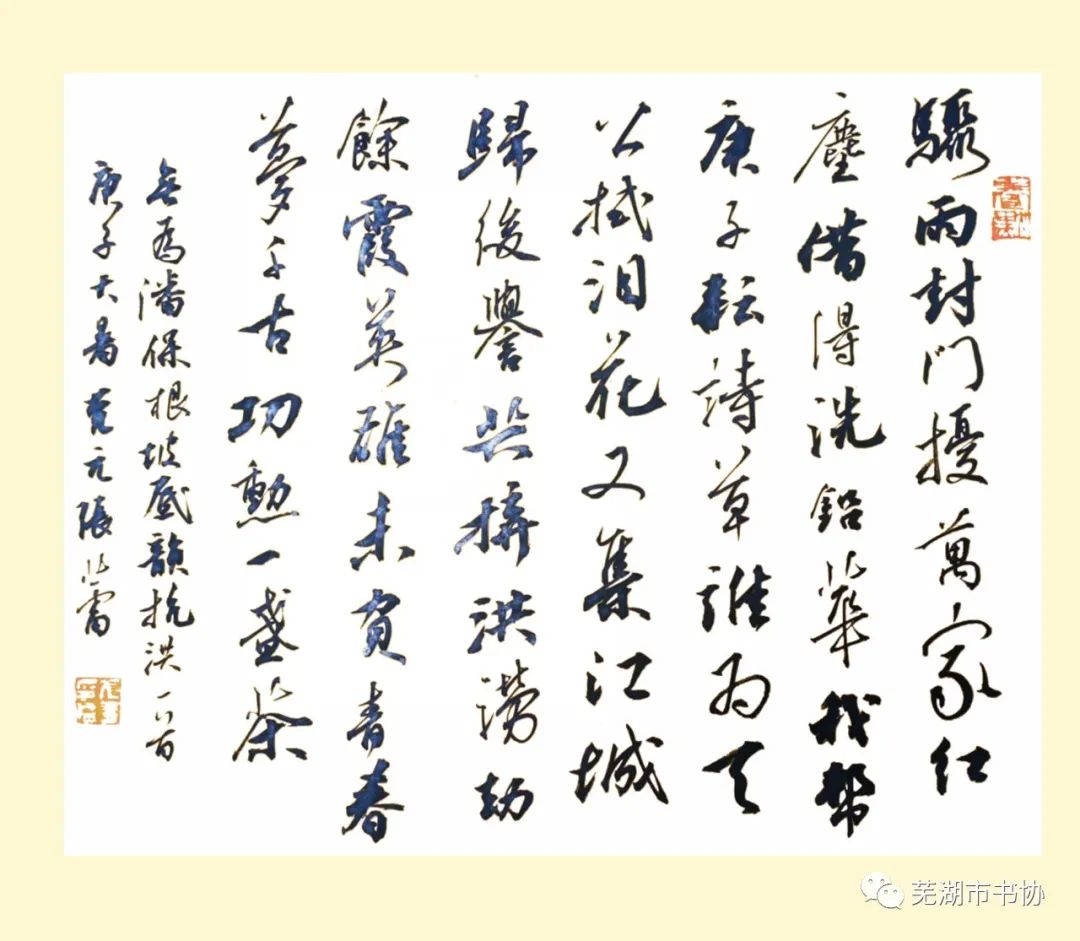 驟雨封門擾萬家紅
塵借得洗鉛華我幫
庚子耘詩草誰為天
公拭泪花又集江城
歸後譽共拼洪澇劫
餘霞英雄未負青春
夢千古功勳一盞茶
無為潘保根坡底韻抗洪一首
庚子大暑元張
芜湖市书协